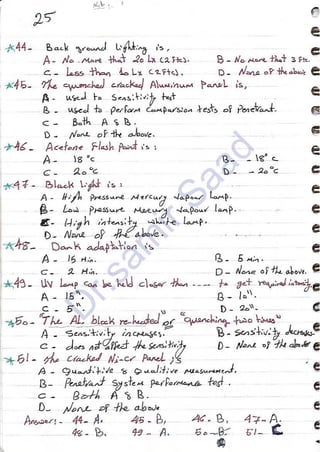 25
*44- Back ground Lighting is,
A- No more that 20 Lx (2Ftc).
B- No More that 3 Ftc.
C- Less than 20 Lx (2Ftc).
D- None of the above
*45- The quenched cracked Aluminum Panel is,
A- used to Sensitivity test
B- used to perform Comparsion tests of Penetrant.
C- Both A & B.
D- None of the above.
*46- Acetone Flash Point is:
A- 18 °c
B- - 18° c
C- 20°c
D- - 20°c
*47- Black light is:
A- High Pressure Mercury Vapour Lamp.
B- Low Pressure Mercury Vapour lamp.
C- High intensity white Lamp.
D- None of the above.
*48- Dark adaptation is
A- 15 Min.
B- 5 Min.
C- 2 Min.
D- None of the above.
*49- UV Lamp can be held closer than ---- to get required intensity
A- 15".
B- 10".
C- 5"
D- 20".
*50- The AL. block re-heated or "quenching two times"
A- Sensitivity increases.
B- Sensitivity decreases
C- does not affect the sensitivity
D- None of the above
*51- the cracked Ni-cr Panel is
A- Quantitive & Qualitive Measurement.
B- Penetrant System performance test.
C- Both A & B.
D- None of the above
Answer:- 44- A, 45- B, 46- B, 47- A.
48- B, 49- A. 50- B- 51- C